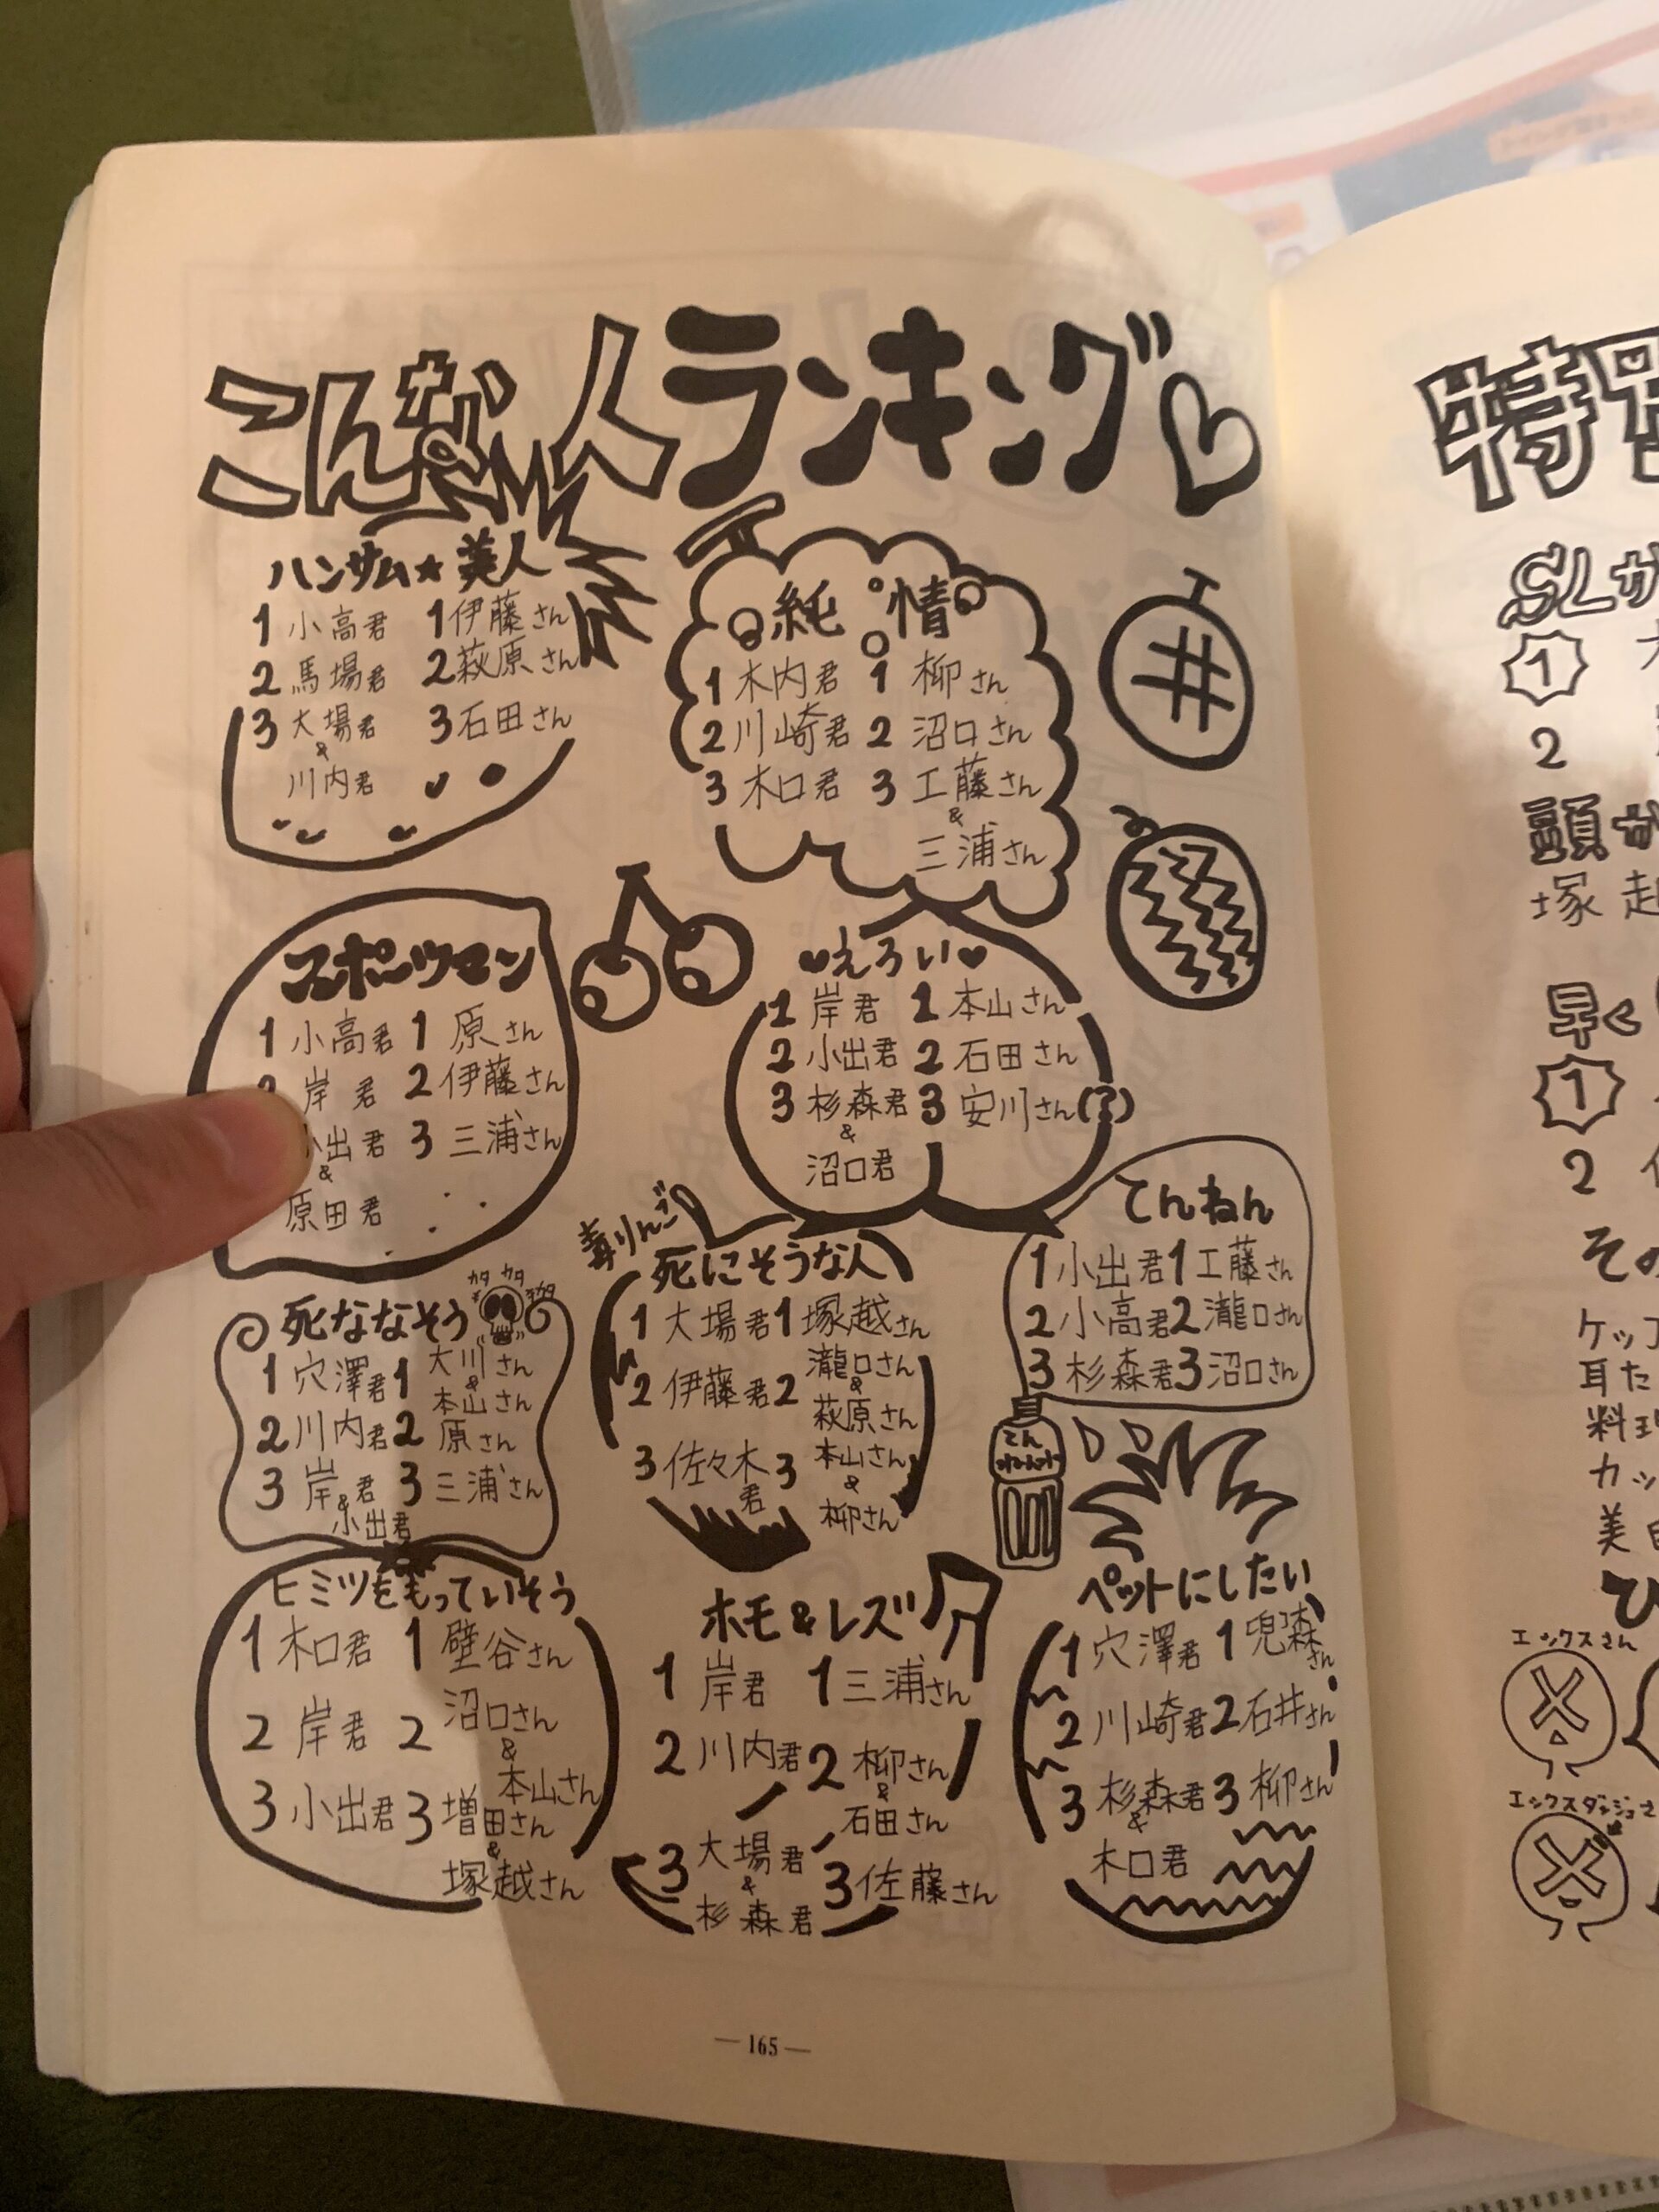 こんな人ランキング
ハンサム★美人
1 小高君 1 伊藤さん
2 馬場君 2 萩原さん
3 大場君 3 石田さん
&
川内君
純情
1 木内君 1 柳さん
2 川崎君 2 沼口さん
3 木口君 3 工藤さん
&
三浦さん
スポーツマン
1 小高君 1 原さん
岸君 2 伊藤さん
出君 3 三浦さん
&
原田君
♥えろい♥
1 岸君 1 本山さん
2 小出君 2 石田さん
3 杉森君 3 安川さん(?)
&
沼口君
てんねん
1 小出君 1 工藤さん
2 小高君 2 瀧口さん
3 杉森君 3 沼口さん
てん
ねん水
毒りんご
死にそうな人
1 大場君 1 塚越さん
2 伊藤君 2 瀧口さん
&
萩原さん
3 佐々木君 3 本山さん
&
柳さん
カタ カタ
死ななそう
1 穴澤君 1 大川さん
&
本山さん
2 川内君 2 原さん
3 岸君 3 三浦さん
&
小出君
ヒミツをもっていそう
1 木口君 1 壁谷さん
2 岸君 2 沼口さん
&
本山さん
3 小出君 3 増田さん
&
塚越さん
ホモ&レズ
1 岸君 1 三浦さん
2 川内君 2 柳さん
&
石田さん
3 大場君 3 佐藤さん
&
杉森君
ペットにしたい
1 穴澤君 1 児森さん
2 川崎君 2 石井さん
3 杉森君 3 柳さん
&
木口君
— 165 —
特
SLが
1
2
頭が
塚越
早く
1
2
その
ケツ
耳た
料理
カッ
美
ひ
エックスさん